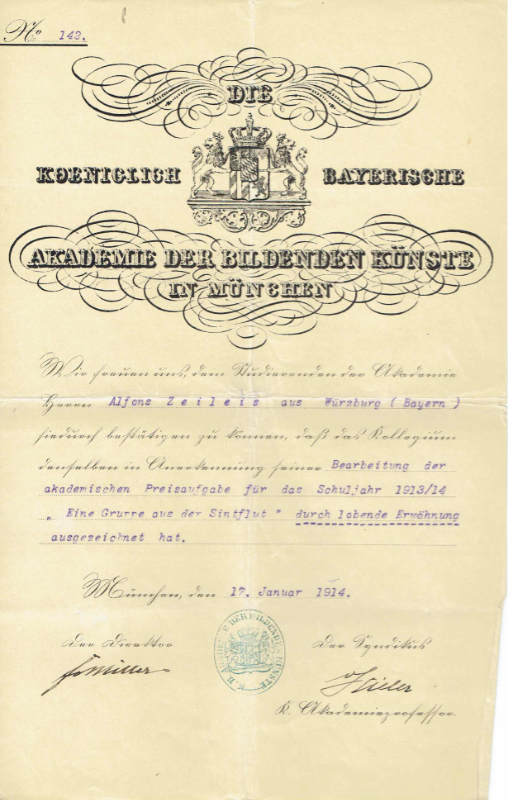 No 143.
DIE
KOENIGLICH BAYERISCHE
AKADEMIE DER BILDENDEN KÜNSTE
IN MÜNCHEN
Wir freuen uns, dem Studierenden der Akademie
Herrn Alfons Zeileis aus Würzburg (Bayern)
hiedurch bestätigen zu können, daß das Kollegium
denselben in Anerkennung seiner Bearbeitung der
akademischen Preisaufgabe für das Schuljahr 1913/14
„ Eine Gruppe aus der Sintflut " durch lobende Erwähnung
ausgezeichnet hat.
München, den 17. Januar 1914.
Der Direktor Der Syndikus
K. Akademieprofessor.